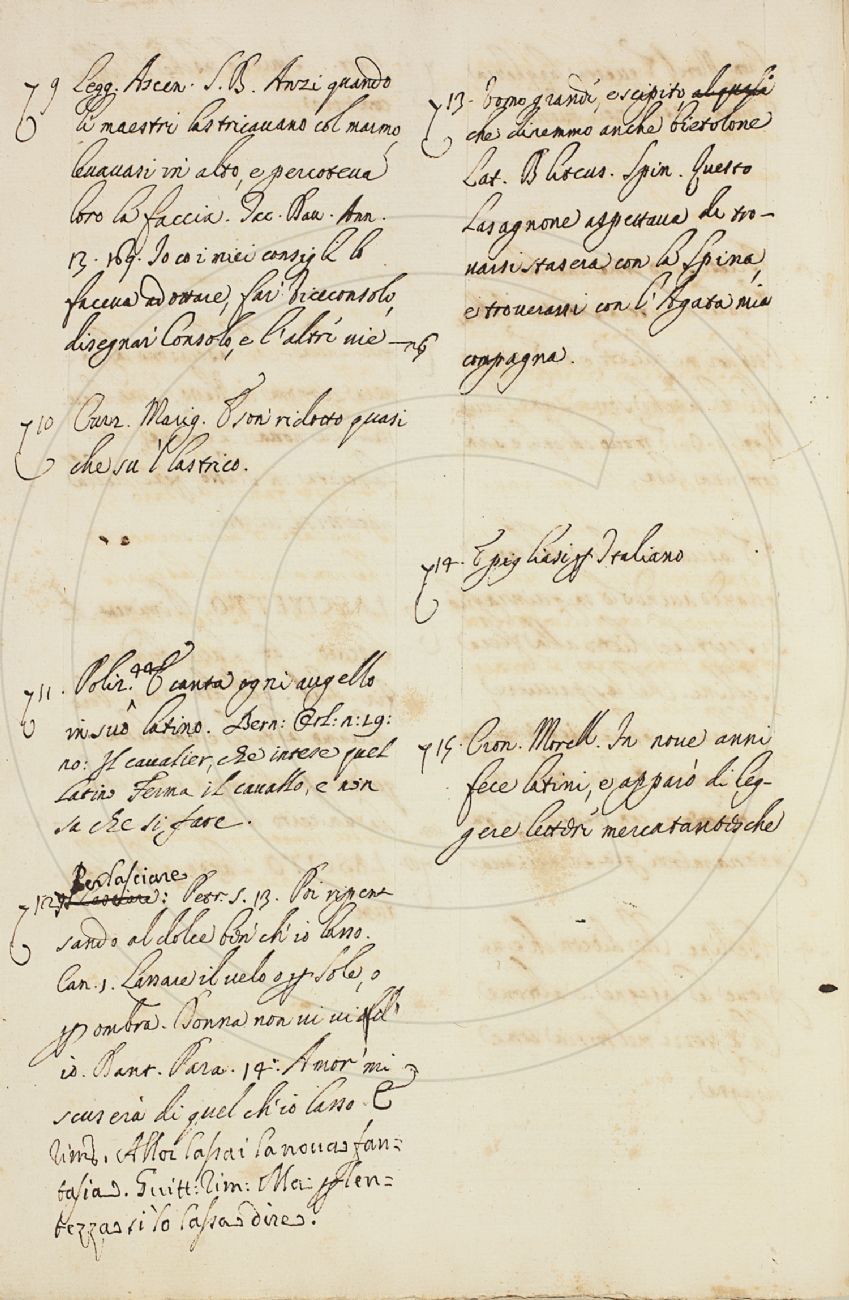 9 Legg. Ascen. S. B. Anzi quando
li maestri lastricavano col marmo,
levavasi in alto, e percoteva
loro la faccia. Tac. Dav. Ann.
13. 169. Io co i miei consigli lo
faceva adottare, far Viceconsolo,
disegnar Consolo, e l'altre vie
10 Curz. Marig. E son ridotto quasi
che su 'l lastrico.
11. Poliz. 44 E canta ogni augello
in suo latino. Bern: Orl: 2: 19:
no: Il cavalier, che intese quel
latin Ferma il cavallo, e non
sa che si fare.
Per lasciare
12 : Petr. S. 13. Poi ripen
sando al dolce ben ch' io lasso.
Can. 1. Lassare il velo o per Sole, o
per ombra. Donna non vi vid'
io. Dant. Para. 14. Amor mi
scuserà di quel ch'io lasso. E
Rim. Allor lassai la nova fan=
tasia. Guitt: Rim: Ma per len=
tezza si lo lassa dire.
13. Uomo grande, e scipito, al quale
che diremmo anche bietolone
Lat. Bliteus. Spin. Questo
Lasagnone aspettava di tro-
varsi stasera con la Spina,
e troverassi con l'Agata mia
compagna.
14. E pigliasi per Italiano
15. Cron. Morell. In nove anni
fece latini, e apparò di leg-
gere lettere mercatantesche